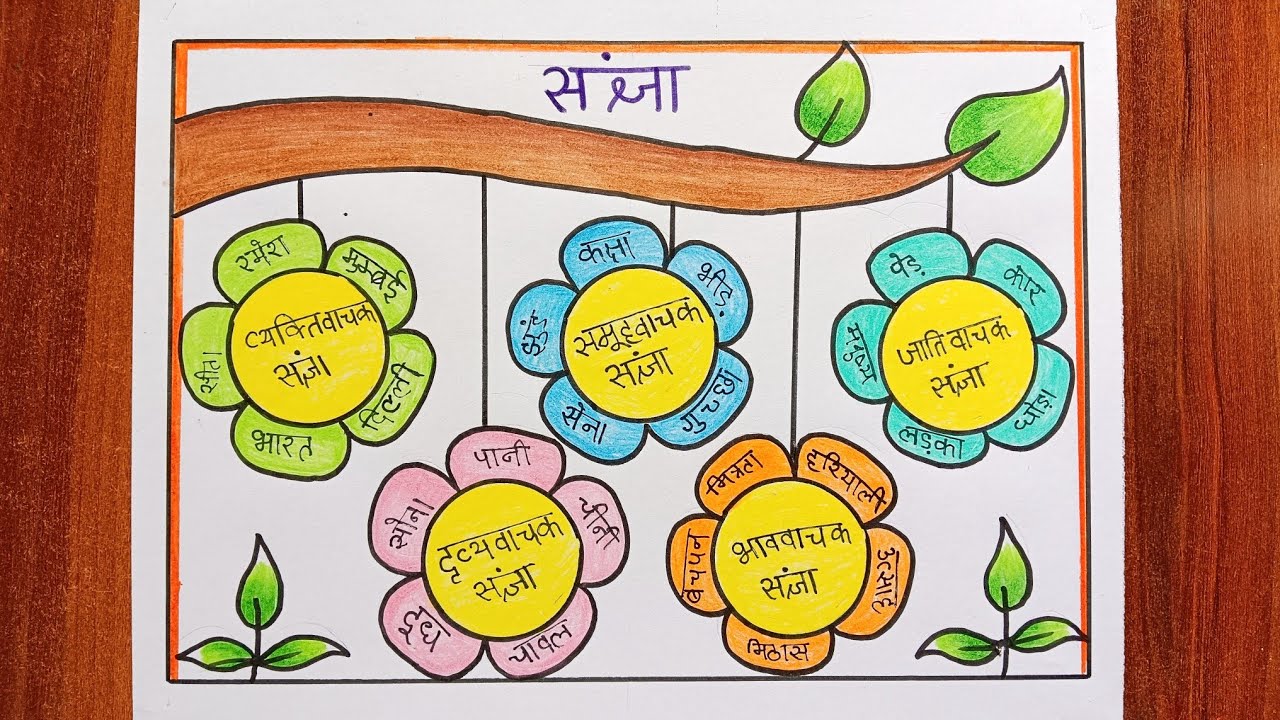 संज्ञा
रमेश
मुम्बई
दिल्ली
भारत
व्यक्तिवाचक
संज्ञा
कक्षा
भीड़
गुच्छा
सेना
झुंड
समूहवाचक
संज्ञा
पेड़
कार
घोड़ा
लड़का
मनुष्य
जातिवाचक
संज्ञा
पानी
चीनी
चावल
दूध
सोना
दृव्यवाचक
संज्ञा
मित्रता
हरियाली
उत्साह
मिठास
बचपन
भाववाचक
संज्ञा